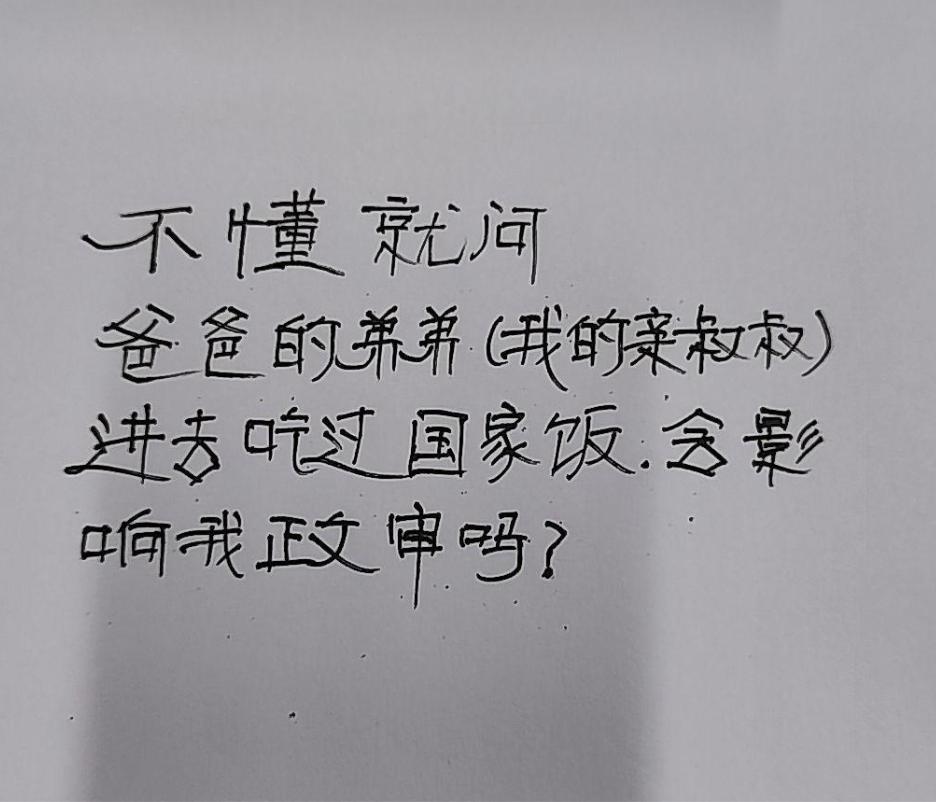 不懂就问
爸爸的弟弟(我的亲叔叔)
进去吃过国家饭.会影
响我政审吗?